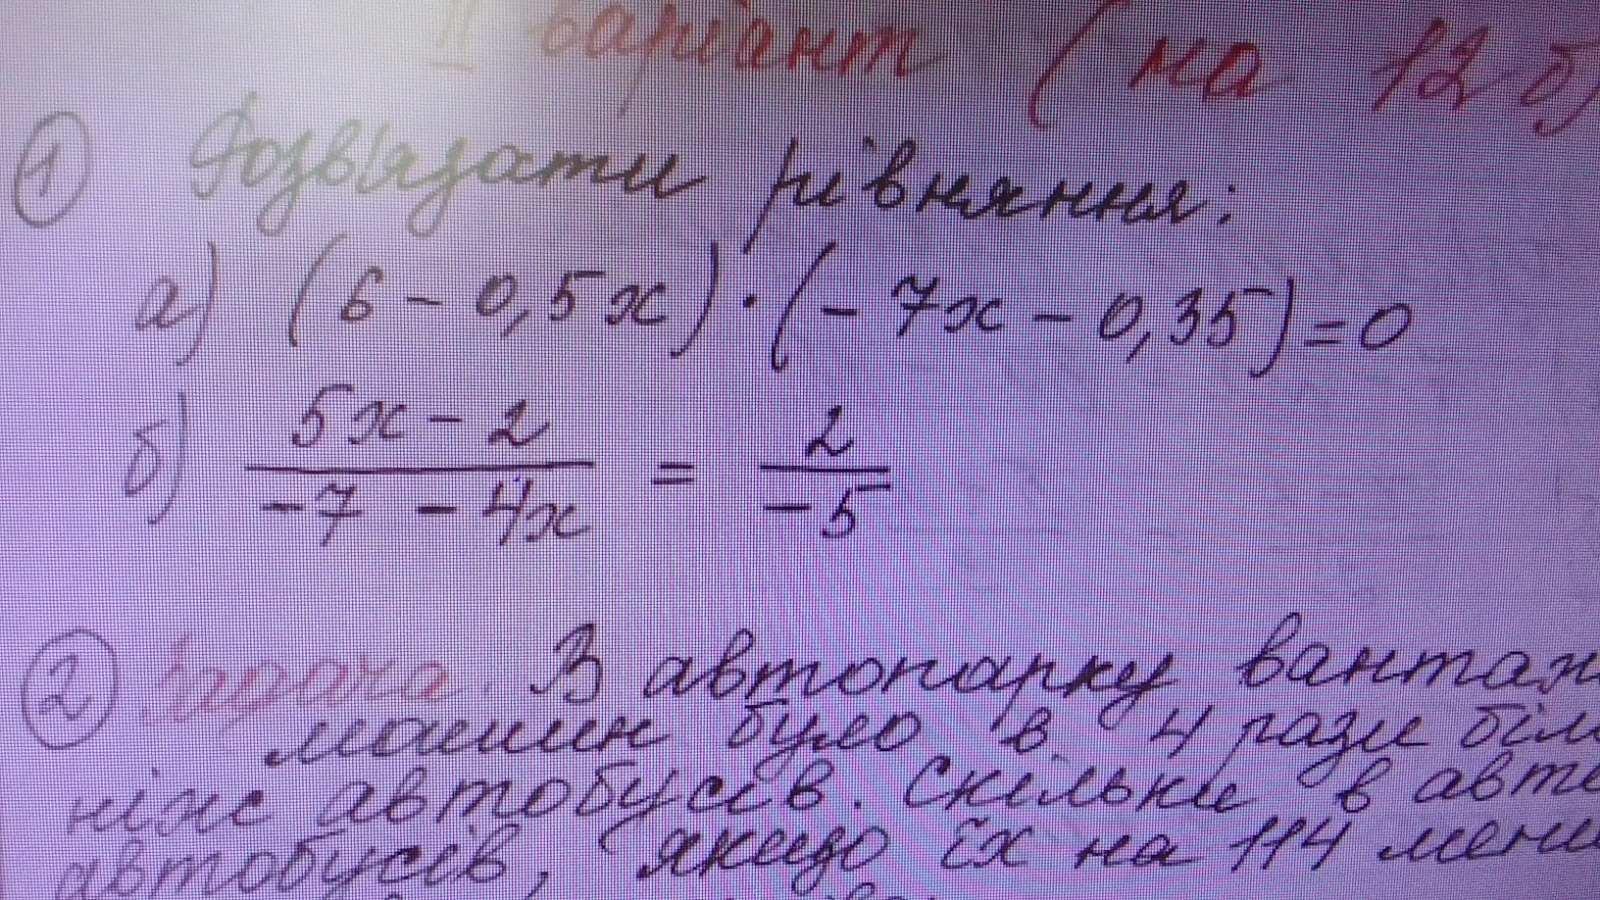 II варіант (на 12 б)
1 Розв'язати рівняння:
а) (6 - 0,5x) · (- 7x - 0,35) = 0
б) 5x - 2 / -7 - 4x = 2 / -5
2 Задача. В автопарку вантаж
машин було в 4 рази біл
ніж автобусів. Скільки в авто
автобусів, якщо їх на 114 мен